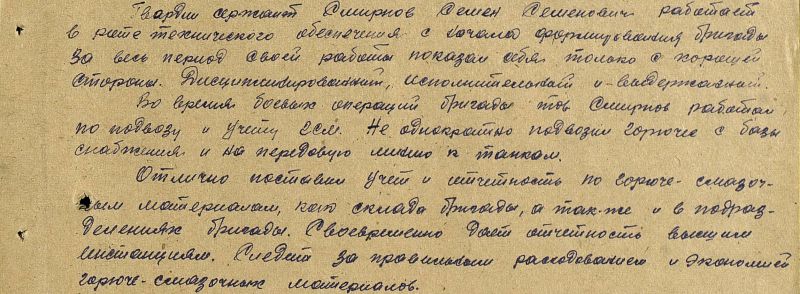 Гвардии сержант Смирнов Семен Семенович работает
в роте технического обеспечения с начала формирования бригады
за весь период своей работы показал себя только с хорошей
стороны. Дисциплинированный, исполнительный и выдержанный.
Во время боевых операций бригады тов Смирнов работал
по подвозу и учету гсм. Не однократно подвозил горючее с базы
снабжения и на передовую линию к танкам.
Отлично поставил учет и отчетность по горюче-смазоч-
ным материалам, как склада бригады, а так-же и в подраз-
делениях бригады. Своевременно дает отчетность высшим
инстанциям. Следит за правильным расходованием и экономией
горюче-смазочных материалов.